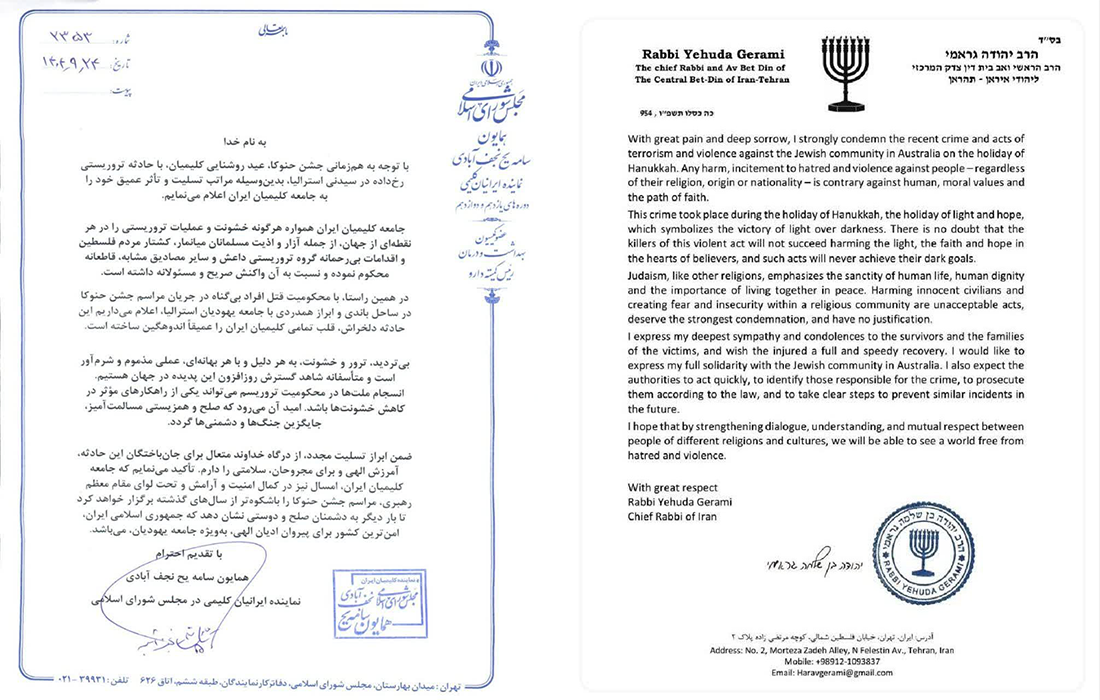 باسمه‌تعالی
شماره: ۷۳۵۳
تاریخ: ۱۴۰۴,۹,۲۴
پیوست:
جمهوری اسلامی ایران
مجلس شورای اسلامی
همایون
سامه یح نجف آبادی
نماینده ایرانیان کلیمی
دوره‌های یازدهم و دوازدهم
عضو کمیسیون
بهداشت و درمان
رئیس کمیته دارو
به نام خدا
با توجه به هم‌زمانی جشن حنوکا، عید روشنایی کلیمیان، با حادثه تروریستی
رخ‌داده در سیدنی استرالیا، بدین‌وسیله مراتب تسلیت و تأثر عمیق خود را
به جامعه کلیمیان ایران اعلام می‌نمایم.
جامعه کلیمیان ایران همواره هرگونه خشونت و عملیات تروریستی را در هر
نقطه‌ای از جهان، از جمله آزار و اذیت مسلمانان میانمار، کشتار مردم فلسطین
و اقدامات بی‌رحمانه گروه تروریستی داعش و سایر مصادیق مشابه، قاطعانه
محکوم نموده و نسبت به آن واکنش صریح و مسئولانه داشته است.
در همین راستا، با محکومیت قتل افراد بی‌گناه در جریان مراسم جشن حنوکا
در ساحل باندی و ابراز همدردی با جامعه یهودیان استرالیا، اعلام می‌داریم این
حادثه دلخراش، قلب تمامی کلیمیان ایران را عمیقاً اندوهگین ساخته است.
بی‌تردید، ترور و خشونت، به هر دلیل و با هر بهانه‌ای، عملی مذموم و شرم‌آور
است و متأسفانه شاهد گسترش روزافزون این پدیده در جهان هستیم.
انسجام ملت‌ها در محکومیت تروریسم می‌تواند یکی از راهکارهای مؤثر در
کاهش خشونت‌ها باشد. امید آن می‌رود که صلح و همزیستی مسالمت‌آمیز،
جایگزین جنگ‌ها و دشمنی‌ها گردد.
ضمن ابراز تسلیت مجدد، از درگاه خداوند متعال برای جان‌باختگان این حادثه،
آمرزش الهی و برای مجروحان، سلامتی را دارم. تأکید می‌نمایم که جامعه
کلیمیان ایران، امسال نیز در کمال امنیت و آرامش و تحت لوای مقام معظم
رهبری، مراسم جشن حنوکا را باشکوه‌تر از سال‌های گذشته برگزار خواهد کرد
تا بار دیگر به دشمنان صلح و دوستی نشان دهد که جمهوری اسلامی ایران،
امن‌ترین کشور برای پیروان ادیان الهی، به‌ویژه جامعه یهودیان، می‌باشد.
با تقدیم احترام
همایون سامه یح نجف آبادی
نماینده ایرانیان کلیمی در مجلس شورای اسلامی
نماینده کلیمیان ایران
مجلس شورای اسلامی
نجف آبادی
همایون سامه یح
تهران: میدان بهارستان، مجلس شورای اسلامی، دفاتر کار نمایندگان، طبقه ششم، اتاق ۶۲۶ تلفن: ۳۹۹۳۱-۰۲۱
בס״ד
Rabbi Yehuda Gerami
The chief Rabbi and Av Bet Din of
The Central Bet-Din of Iran-Tehran
הרב יהודה גראמי
הרב הראשי ואב בית דין צדק המרכזי
ליהודי איראן - תהראן
כה כסלו תשפ״ו , 954
With great pain and deep sorrow, I strongly condemn the recent crime and acts of
terrorism and violence against the Jewish community in Australia on the holiday of
Hanukkah. Any harm, incitement to hatred and violence against people – regardless
of their religion, origin or nationality – is contrary against human, moral values and
the path of faith.
This crime took place during the holiday of Hanukkah, the holiday of light and hope,
which symbolizes the victory of light over darkness. There is no doubt that the
killers of this violent act will not succeed harming the light, the faith and hope in
the hearts of believers, and such acts will never achieve their dark goals.
Judaism, like other religions, emphasizes the sanctity of human life, human dignity
and the importance of living together in peace. Harming innocent civilians and
creating fear and insecurity within a religious community are unacceptable acts,
deserve the strongest condemnation, and have no justification.
I express my deepest sympathy and condolences to the survivors and the families
of the victims, and wish the injured a full and speedy recovery. I would like to
express my full solidarity with the Jewish community in Australia. I also expect the
authorities to act quickly, to identify those responsible for the crime, to prosecute
them according to the law, and to take clear steps to prevent similar incidents in
the future.
I hope that by strengthening dialogue, understanding, and mutual respect between
people of different religions and cultures, we will be able to see a world free from
hatred and violence.
With great respect
Rabbi Yehuda Gerami
Chief Rabbi of Iran
יהודה בן שלמה גראמי
הרב יהודה בן שלמה גראמי
RABBI YEHUDA GERAMI
آدرس: ایران، تهران، خیابان فلسطین شمالی، کوچه مرتضی زاده پلاک ۲
Address: No. 2, Morteza Zadeh Alley, N Felestin Av., Tehran, Iran
Mobile: +98912-1093837
Email: Haravgerami@gmail.com